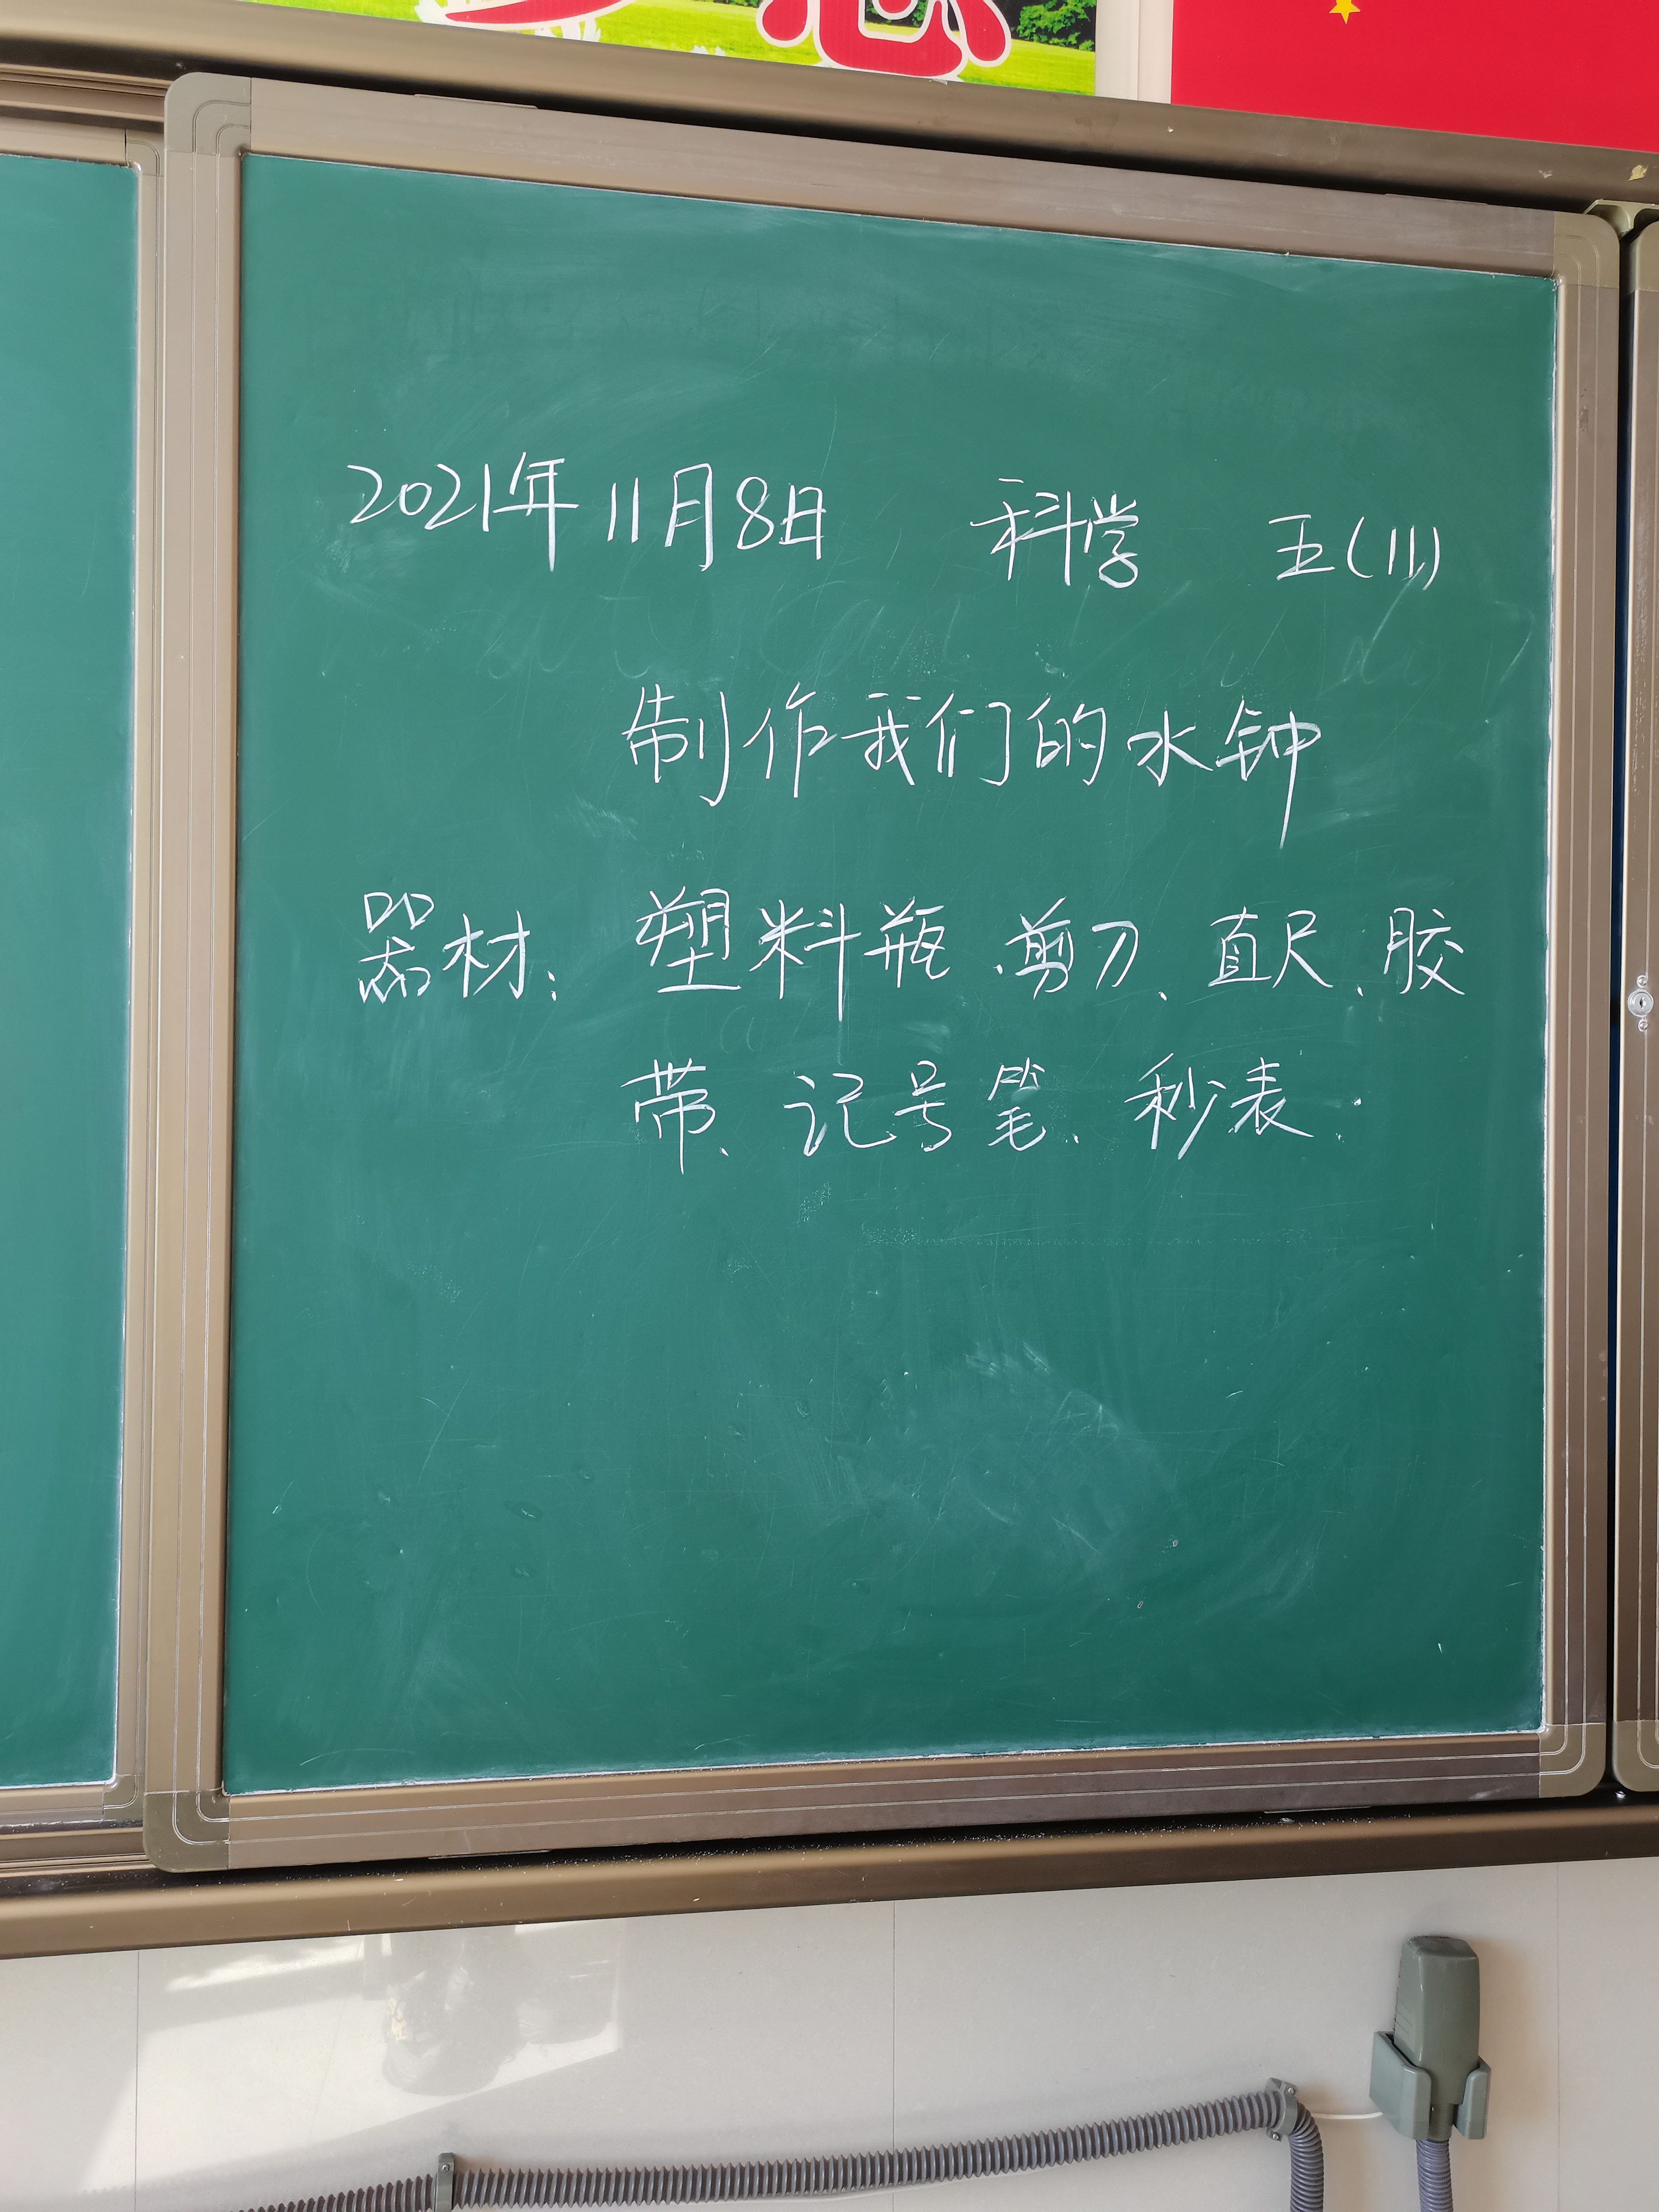 2021年11月8日 科学 五(11)
制作我们的水钟
器材：塑料瓶、剪刀、直尺、胶
带、记号笔、秒表.